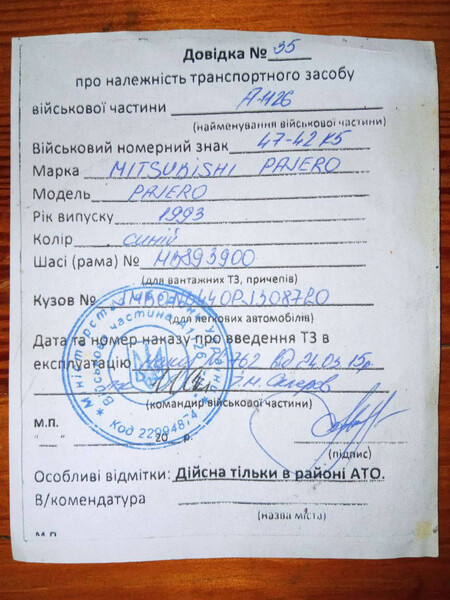 Довідка № 35
про належність транспортного засобу
військової частини А-1126
(найменування військової частини)
Військовий номерний знак 47-42 К5
Марка MITSUBISHI PAJERO
Модель PAJERO
Рік випуску 1993
Колір синій
Шасі (рама) № НК893900
(для вантажних ТЗ, причепів)
Кузов №
(для легкових автомобілів)
Дата та номер наказу про введення ТЗ в
експлуатацію 24.03.15р.
(командир військової частини)
М.П.
" " 20 р.
(підпис)
Особливі відмітки: Дійсна тільки в районі АТО.
В/комендатура
(назва міста)
М.П.
Міністерство оборони України
Військова частина А1126
Код 22994874